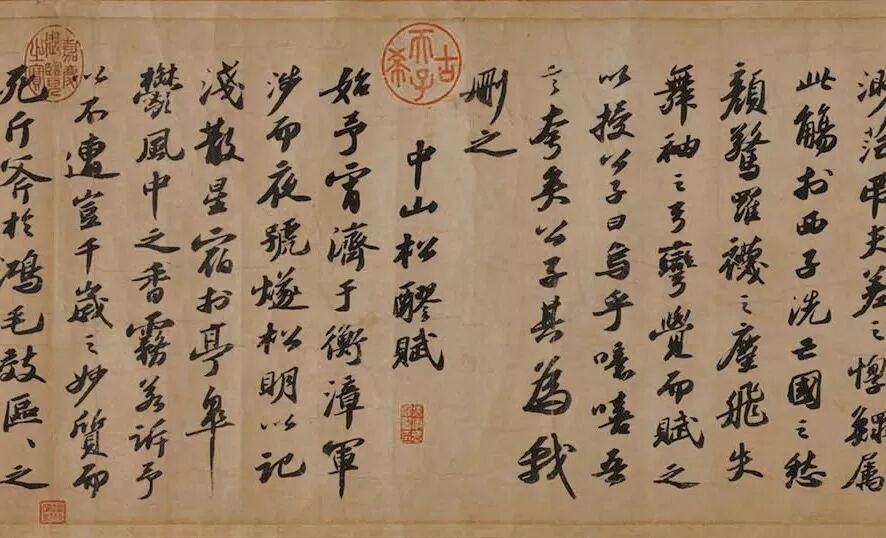 渺茫弔夫差之惸鰥屬
此觴於西子洗亡國之愁
顏驚羅襪之塵飛失
舞袖之弓彎覺而賦之
以授公子曰烏乎噫嘻吾
言夸矣公子其為我
刪之
古希天子
中山松醪賦
始予宵濟于衡漳軍
涉而夜號燧松明以記
淺散星宿於亭皋
鬱風中之香霧若訴予
以不遭豈千歲之妙質而
死斤斧於鴻毛效區、之
嘉慶御覽之寶